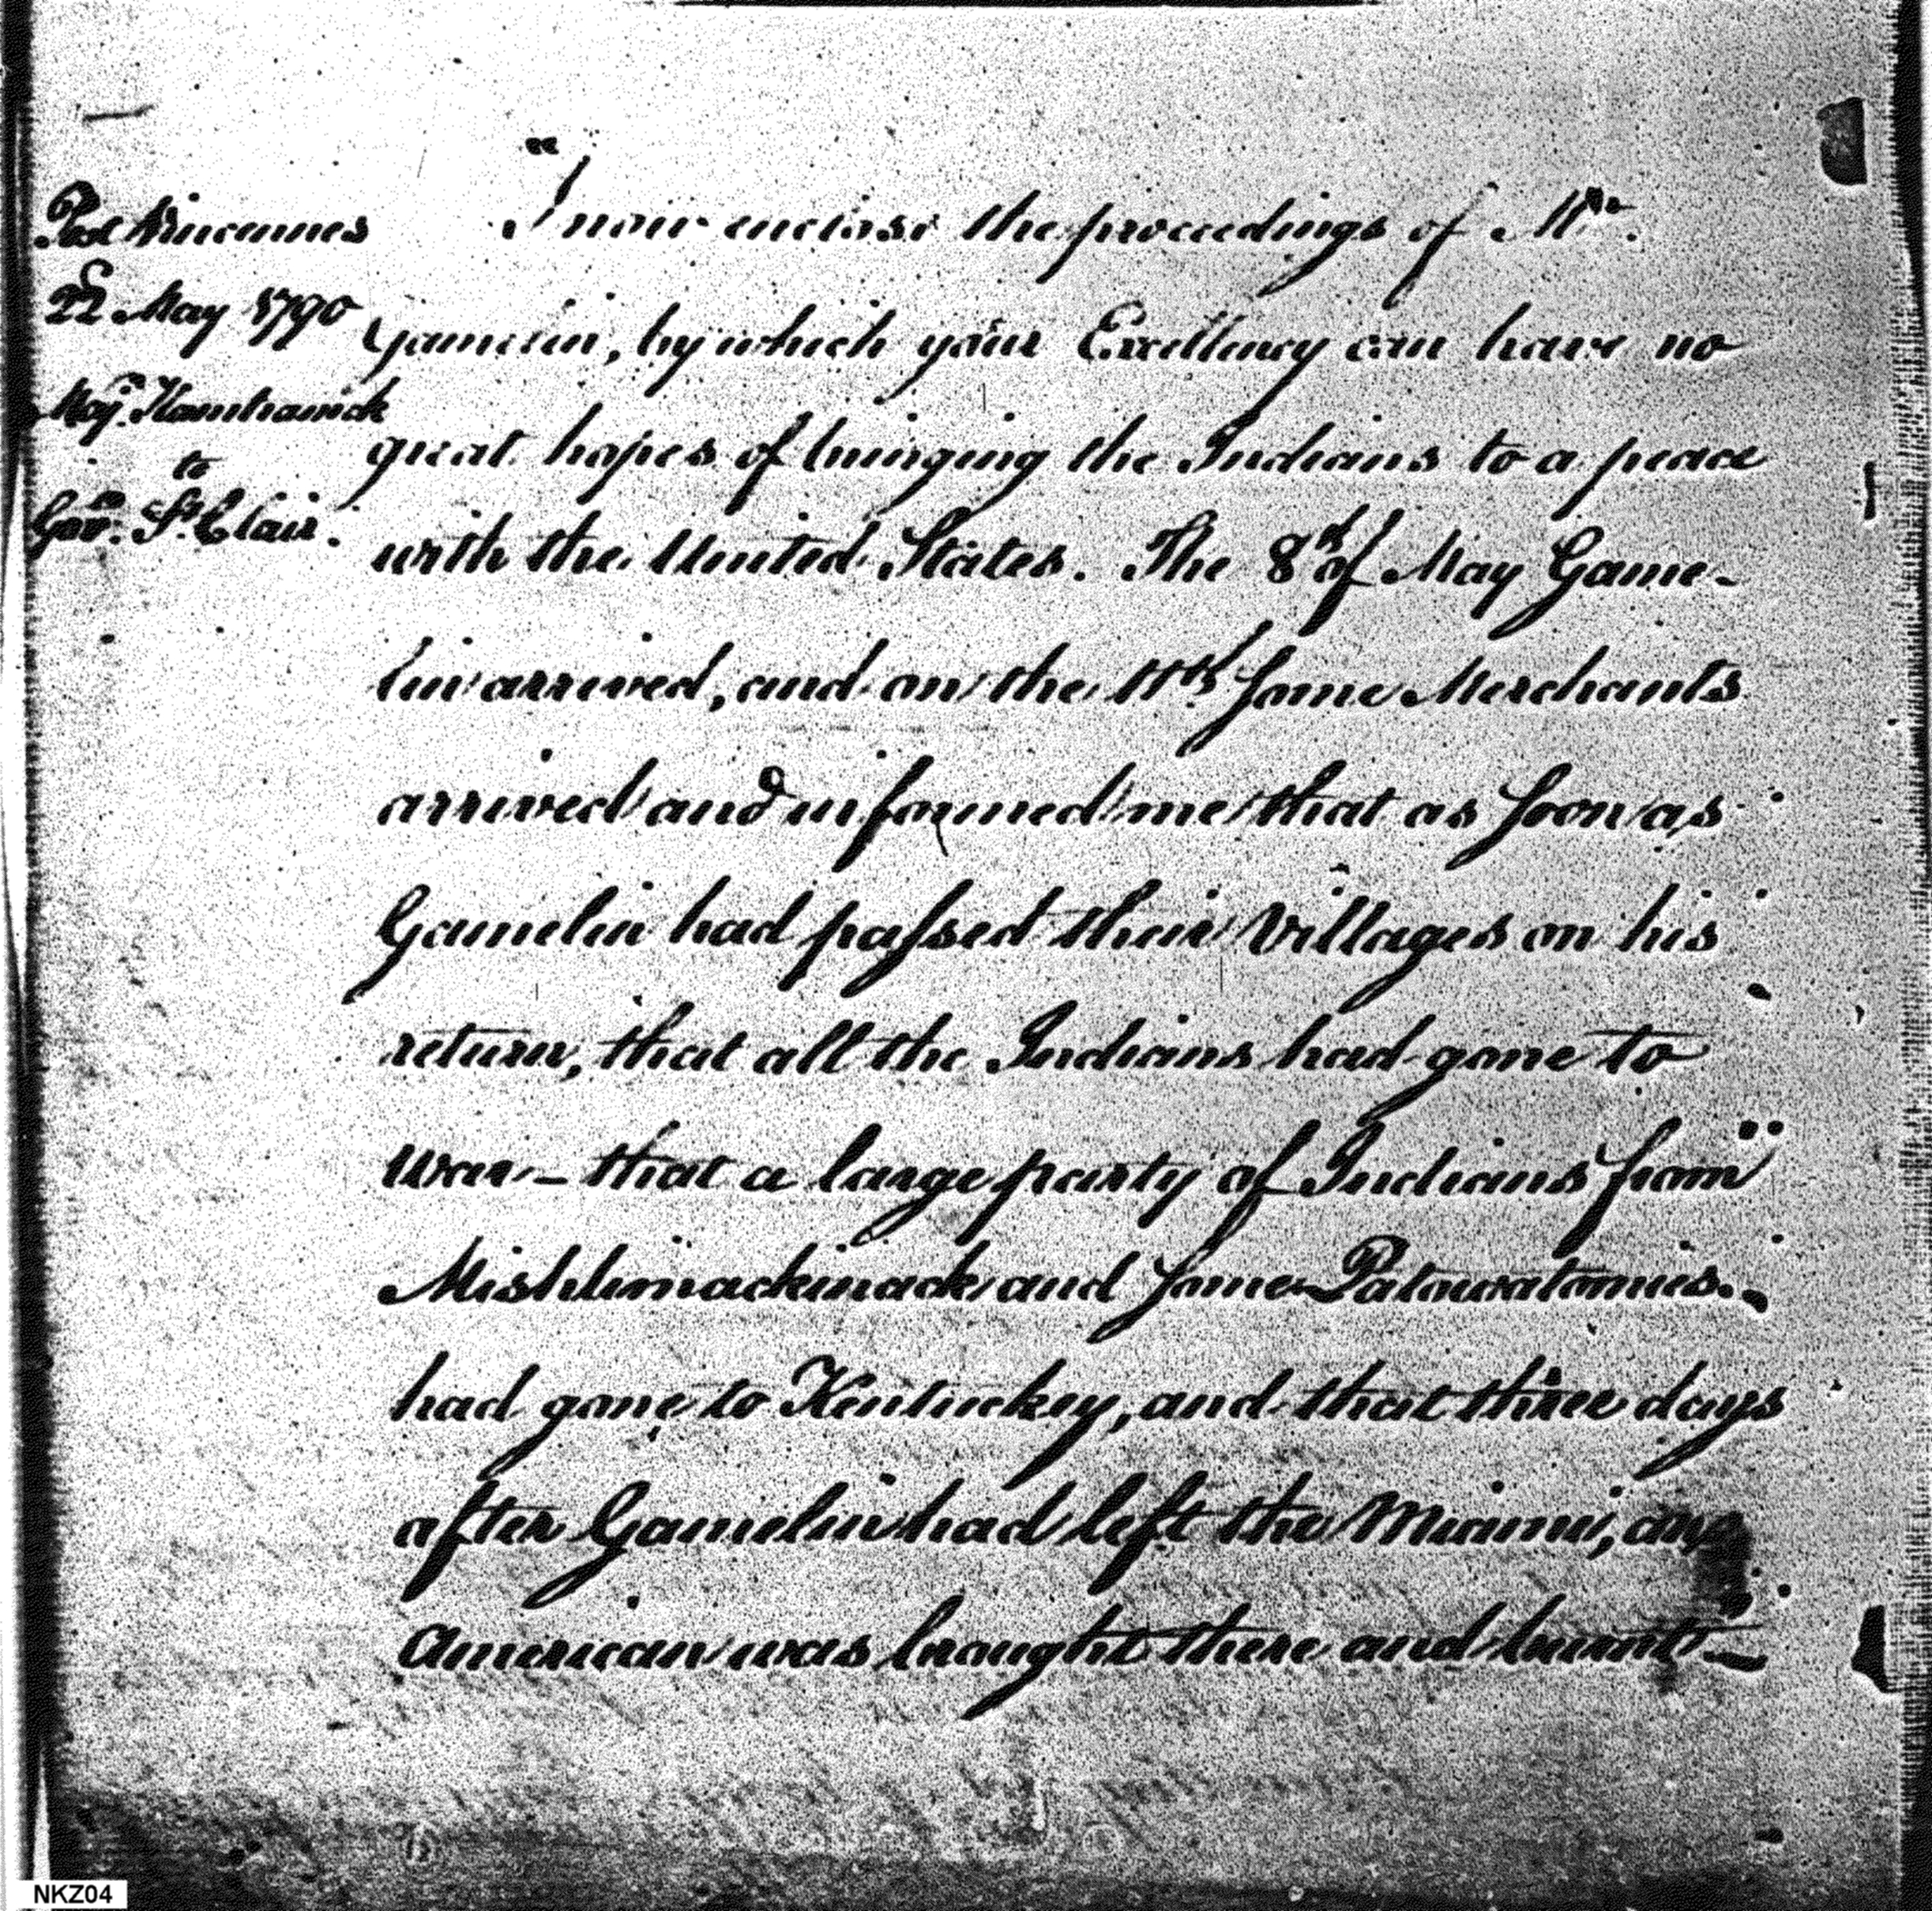 Post Vincennes
22d May 1790
Majr. Hamtramck
to
Govr. St. Clair.
"I now enclose the proceedings of Mr.
Gamelin, by which your Excellency can have no
great hopes of bringing the Indians to a peace
with the United States. The 8th of May Game-
lin arrived, and on the 11th some Merchants
arrived and informed me that as soon as
Gamelin had passed their Villages on his
return, that all the Indians had gone to
war – that a large party of Indians from
Mishlimackinack and some Patowatomies
had gone to Kentuckey, and that three days
after Gamelin had left the Miami, an
American was brought there and burnt –
NKZ04